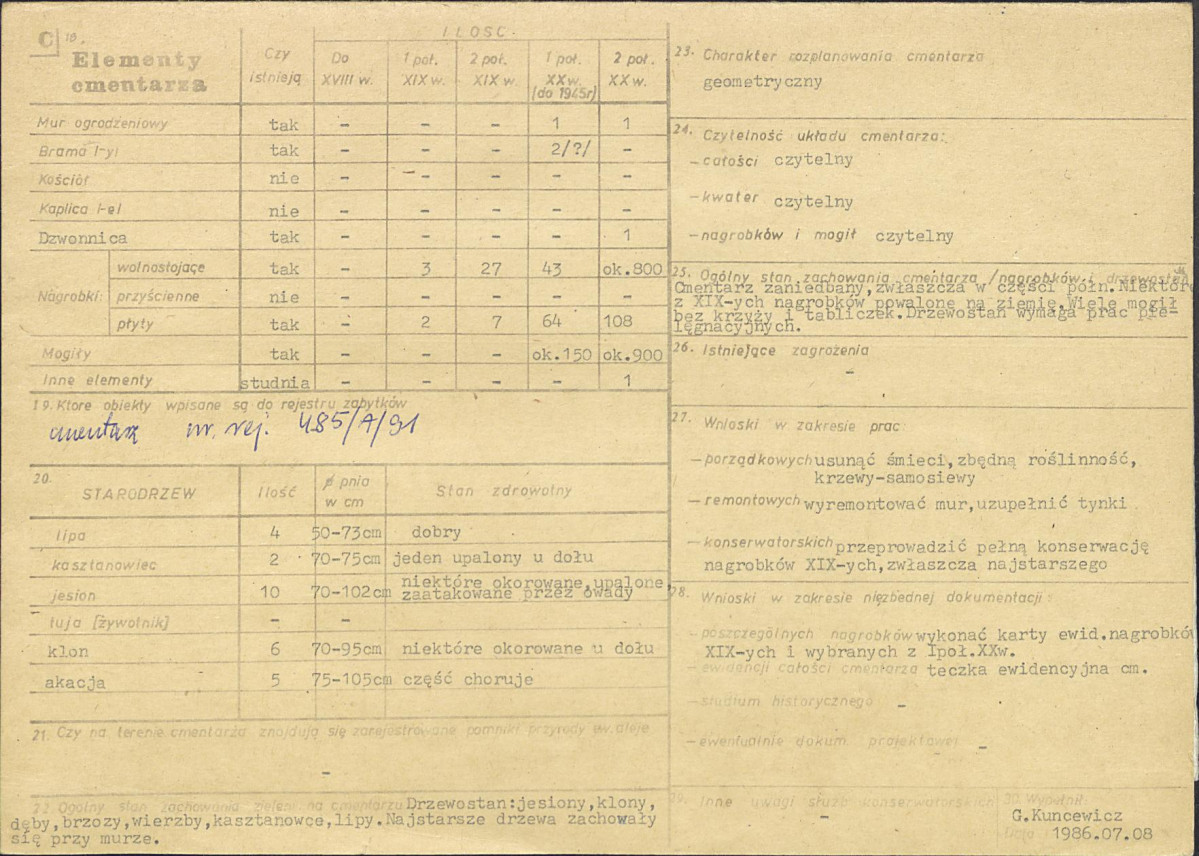 C 18.
Elementy cmentarza
Czy istnieją
ILOŚĆ.
Do XVIII w.
1 poł. XIX w.
2 poł. XIX w.
1 poł. XX w. (do 1945r)
2 poł. XX w.
Mur ogrodzeniowy tak - - - 1 1
Brama /-y/ tak - - - 2/?/ -
Kościół nie - - - - -
Kaplica /-e/ nie - - - - -
Dzwonnica tak - - - - 1
Nagrobki: wolnostojące tak - 3 27 43 ok.800
przyścienne nie - - - - -
płyty tak - 2 7 64 108
Mogiły tak - - - ok.150 ok.900
Inne elementy studnia - - - - 1
19. Które obiekty wpisane są do rejestru zabytków
cmentarz nr. rej. 485/A/91
20. STARODRZEW Ilość ø pnia w cm Stan zdrowotny
lipa 4 50-73cm dobry
kasztanowiec 2 70-75cm jeden upalony u dołu
jesion 10 70-102cm niektóre okorowane,upalone,
zaatakowane przez owady
tuja [żywotnik] - -
klon 6 70-95cm niektóre okorowane u dołu
akacja 5 75-105cm część choruje
21. Czy na terenie cmentarza znajdują się zarejestrowane pomniki przyrody ew. aleje
-
22. Ogólny stan zachowania zieleni na cmentarzu Drzewostan:jesiony,klony,
dęby,brzozy,wierzby,kasztanowce,lipy.Najstarsze drzewa zachowały
się przy murze.
23. Charakter rozplanowania cmentarza
geometryczny
24. Czytelność układu cmentarza:
- całości czytelny
- kwater czytelny
- nagrobków i mogił czytelny
25. Ogólny stan zachowania cmentarza /nagrobków i
Cmentarz zaniedbany,zwłaszcza w części półn.Niektóre
z XIX-ych nagrobków powalone na ziemię.Wiele mogił
bez krzyży i tabliczek.Drzewostan wymaga prac pie-
lęgnacyjnych.
26. Istniejące zagrożenia
-
27. Wnioski w zakresie prac:
- porządkowych usunąć śmieci,zbędną roślinność,
krzewy-samosiewy
- remontowych wyremontować mur,uzupełnić tynki
- konserwatorskich przeprowadzić pełną konserwację
nagrobków XIX-ych,zwłaszcza najstarszego
28. Wnioski w zakresie niezbędnej dokumentacji:
- poszczególnych nagrobków wykonać karty ewid.nagrobków
XIX-ych i wybranych z Ipoł.XXw.
- ewidencji całości cmentarza teczka ewidencyjna cm.
- studium historycznego -
- ewentualnie dokum. projektowej -
29. Inne uwagi służb konserwatorskich
-
30. Wypełnił:
G.Kuncewicz
Data 1986.07.08